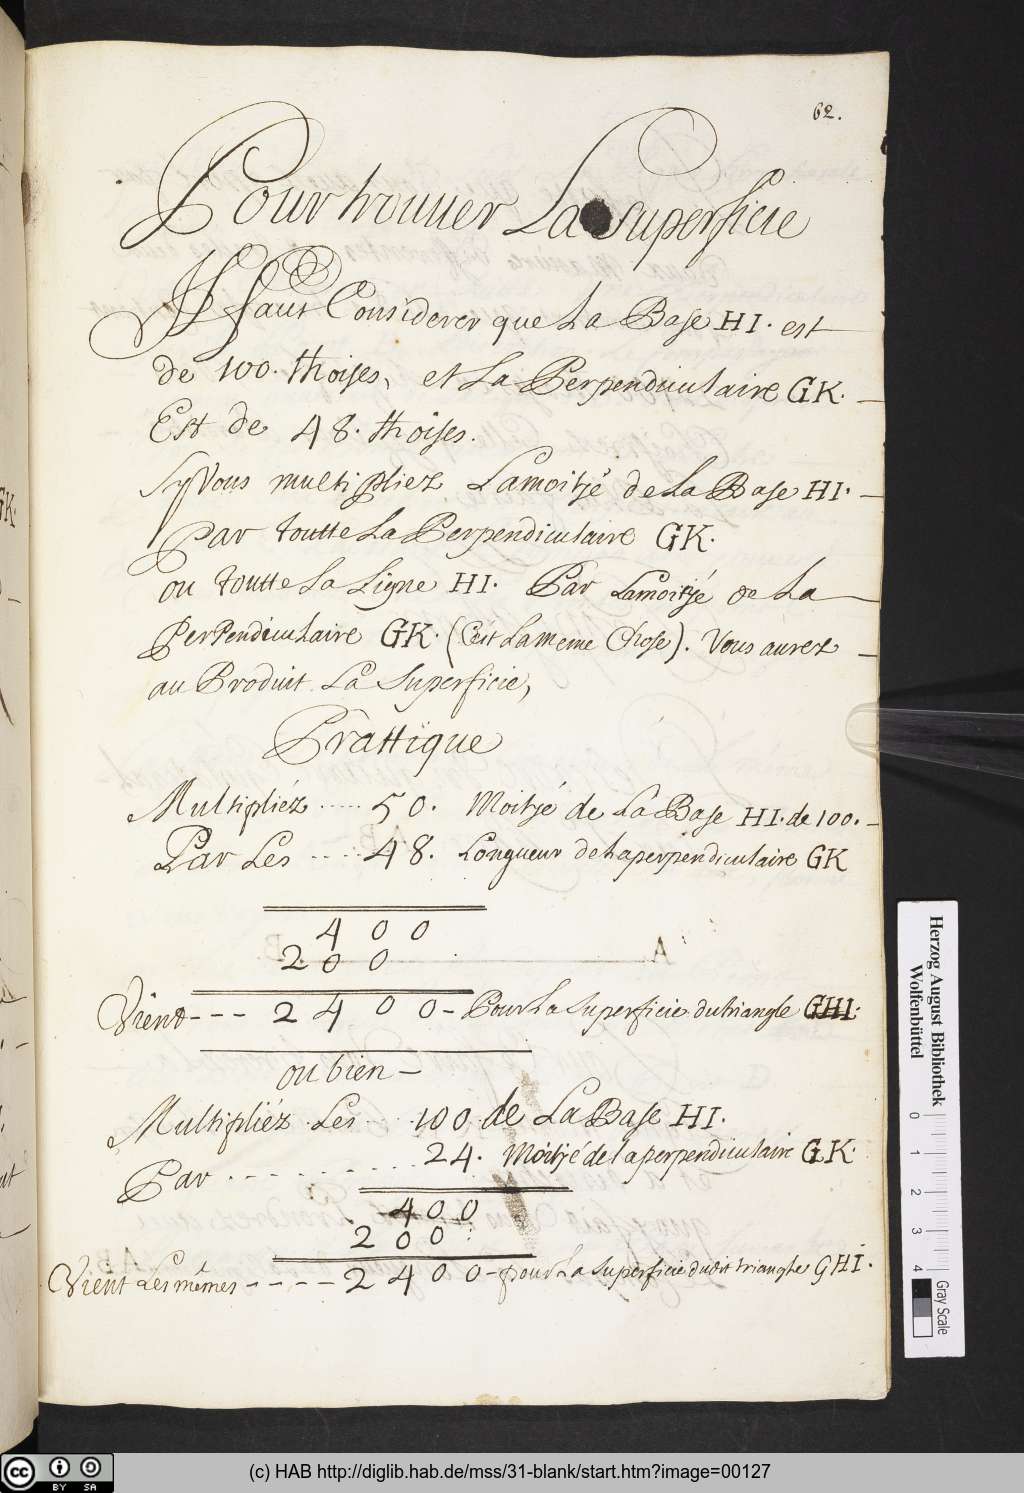 62.
Pour trouuer La Superficie
Il faut Considerer que La Base HI. est
de 100. thoises, et La Perpendiculaire GK.
Est de 48. thoises.
Sy Vous multipliez La moitjé de La Base HI.
Par toutte La Perpendiculaire GK.
ou toutte La Ligne HI. Par La moitjé de La
Perpendiculaire GK. (C'est La meme Chose). Vous aurez
au Produit La Superficie,
Prattique
Multipliéz ..... 50. Moitjé de La Base HI. de 100.
Par Les .... 48. Longueur de La perpendiculaire GK
400
200
Vient --- 2400 - Pour La Superficie du triangle GHI:
ou bien -
Multipliéz Les ... 100 de La Base HI.
Par ......... 24. Moitjé de la perpendiculaire GK.
400
200
Vient Les mêmes ---- 2400 - pour La Superficie dudit triangle GHI.
GK.
Herzog August Bibliothek
Wolfenbüttel
0 1 2 3 4
Gray Scale
cc BY SA
(c) HAB http://diglib.hab.de/mss/31-blank/start.htm?image=00127